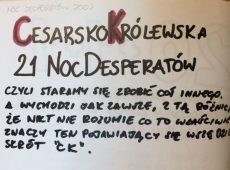 NOC DESPERATÓW 2003
CESARSKOKRÓLEWSKA
21 NOC DESPERATÓW
CZYLI STARAMY SIĘ ZROBIĆ COŚ INNEGO.
A WYCHODZI JAK ZAWSZE, Z TĄ RÓŻNICĄ
ŻE NIKT NIE ROZUMIE CO TO WŁAŚCIWIE
ZNACZY TEN POJAWIAJĄCY SIĘ WSZĘDZIE
SKRÓT "CK".